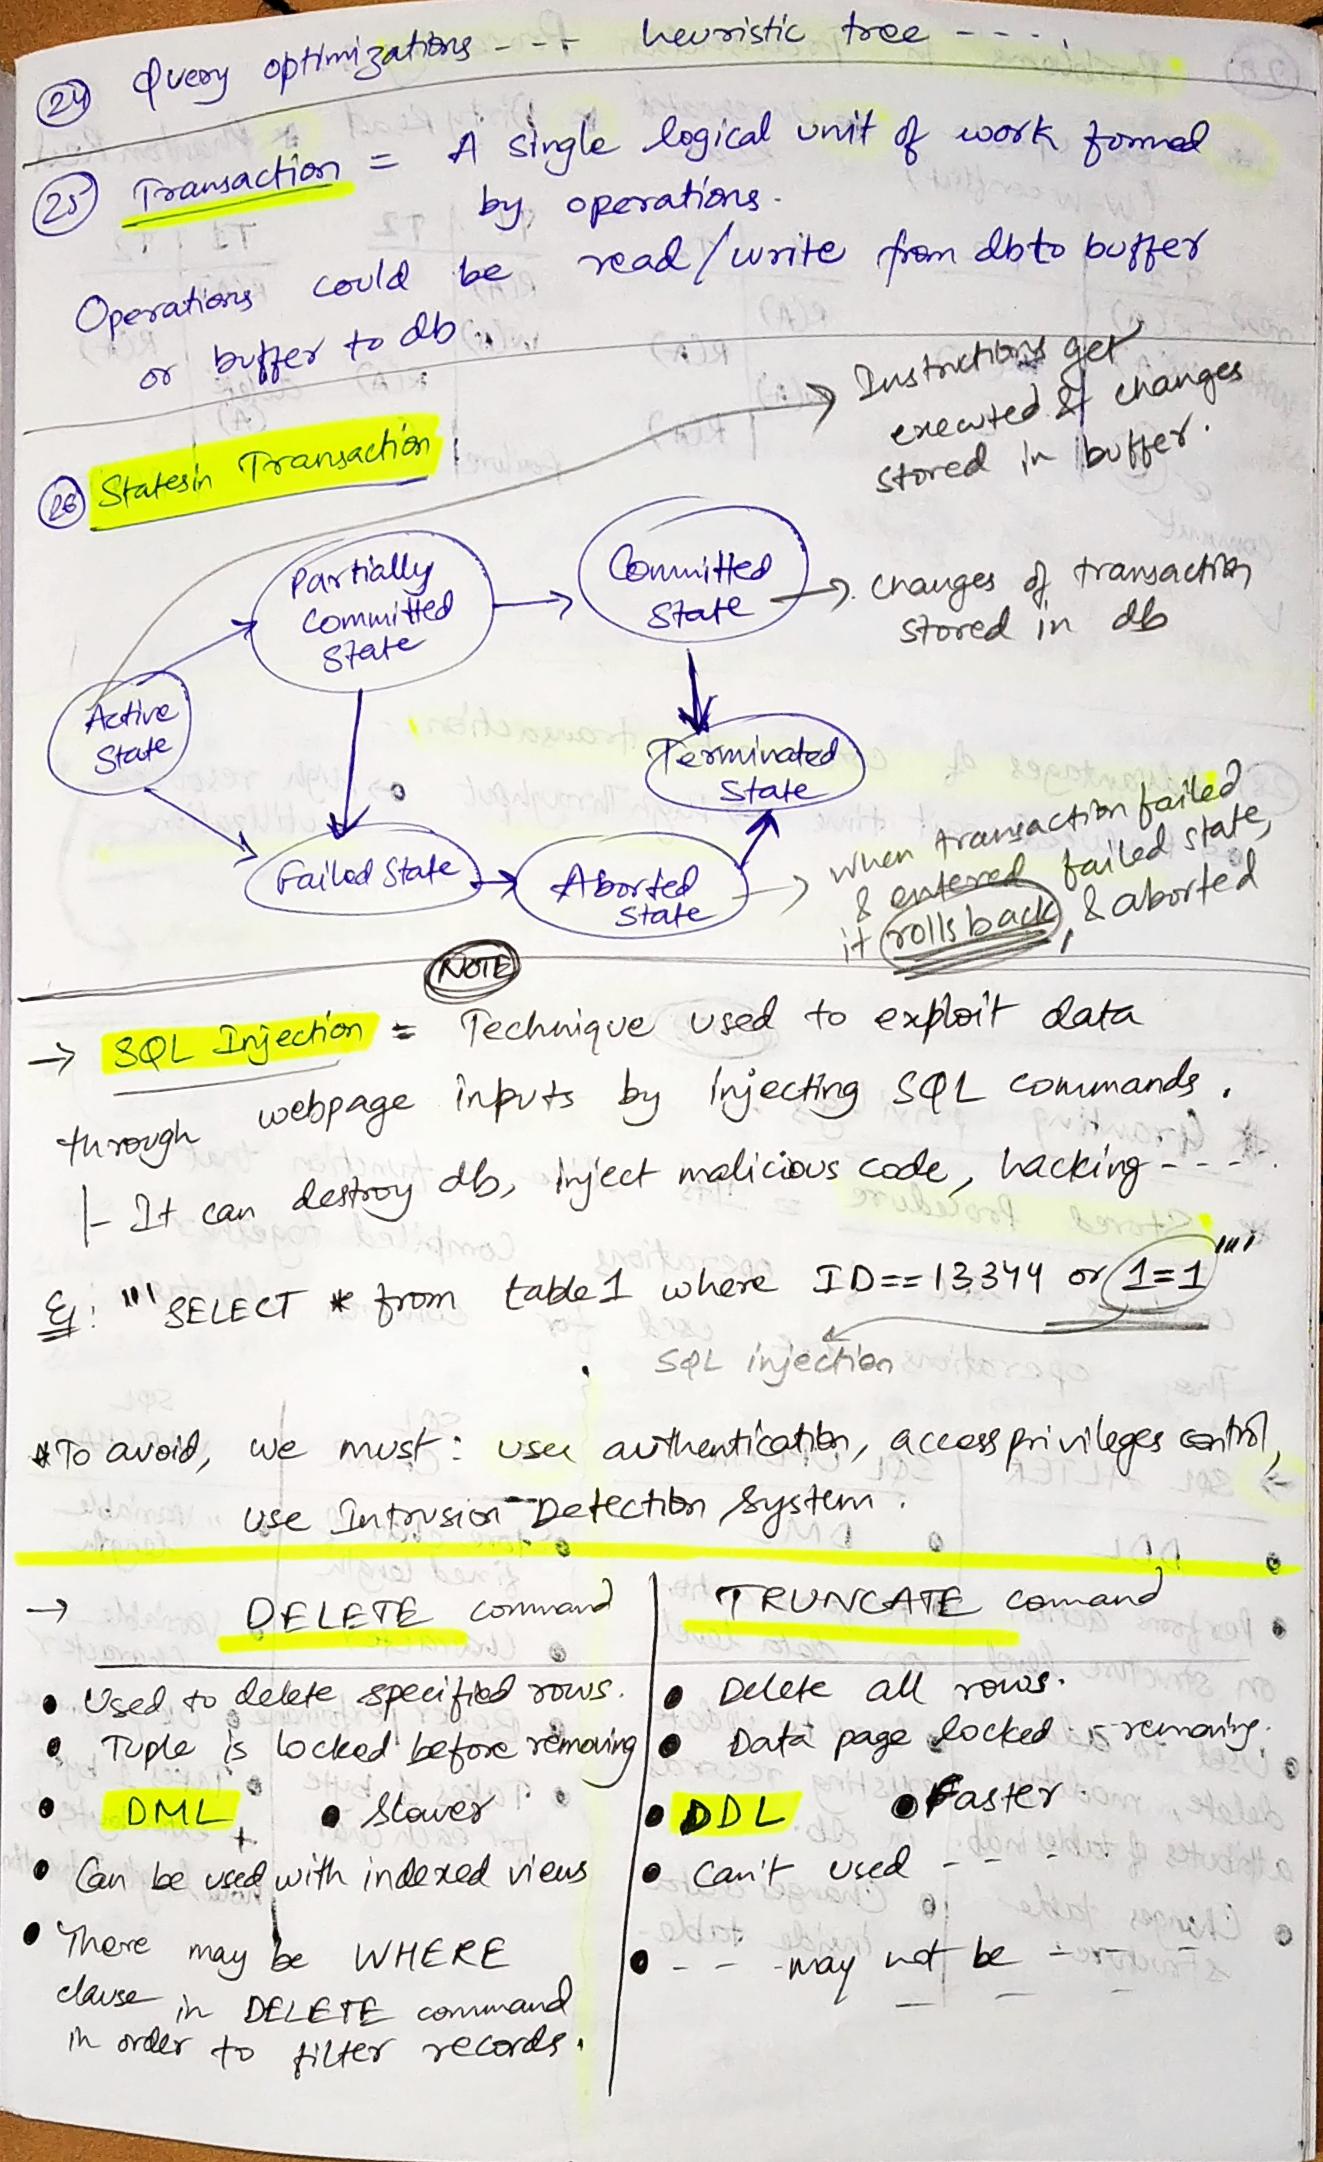 24 Query optimizations - - - heuristic tree - - - .
25 Transaction = A single logical unit of work formed
by operations.
Operations could be read/write from db to buffer
or buffer to db.
Instructions get
executed & changes
stored in buffer.
26 States in Transaction
Partially
Committed
State
Committed
State
changes of transaction
stored in db
Active
State
Terminated
State
Failed State
Aborted
State
when transaction failed
& entered failed state,
it rolls back, & aborted
NOTE
→ SQL Injection = Technique used to exploit data
through webpage inputs by injecting SQL commands.
|- It can destroy db, inject malicious code, hacking - - - .
Eg: "'SELECT * from table1 where ID==13344 or 1=1"'
SQL injection
* To avoid, we must: user authentication, access privileges control,
use Intrusion Detection System.
→ DELETE command
• Used to delete specified rows.
• Tuple is locked before removing
• DML • Slower
• Can be used with indexed views
• There may be WHERE
clause in DELETE command
in order to filter records.
TRUNCATE comand
• Delete all rows.
• Data page locked removing.
• DDL • Faster
• Can't used - - - -
• - - -may not be - - -